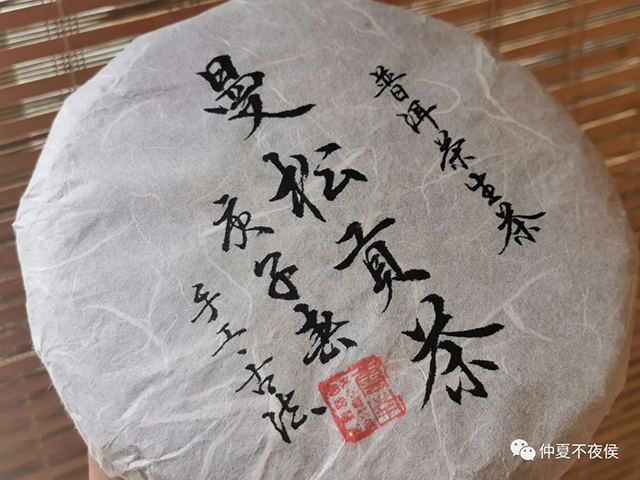 普洱茶生茶
曼松贡茶
庚子春
手工·古法
仲夏不夜侯